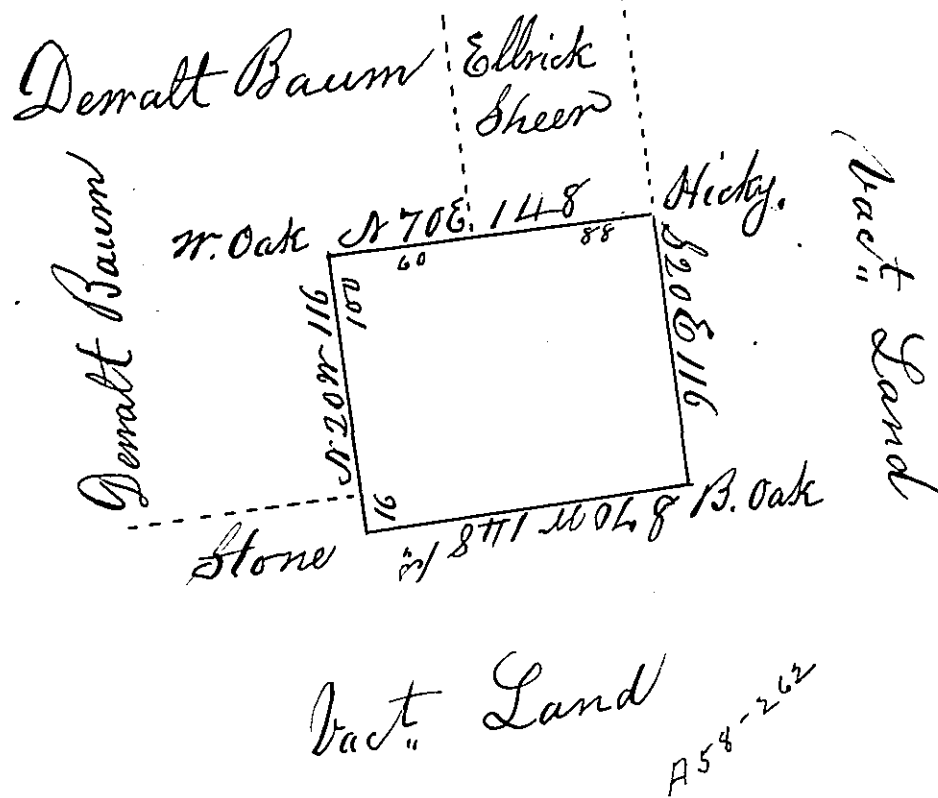 Dewalt Baum
Ellrick
Sheer
Dewalt Baum
W. Oak
N 70 E 148
60
88
Hicky.
Vact. Land
S 20 E 116
N 20 W 116
100
16
B. Oak
S 70 W 148
Stone
Vact. Land
A58-262